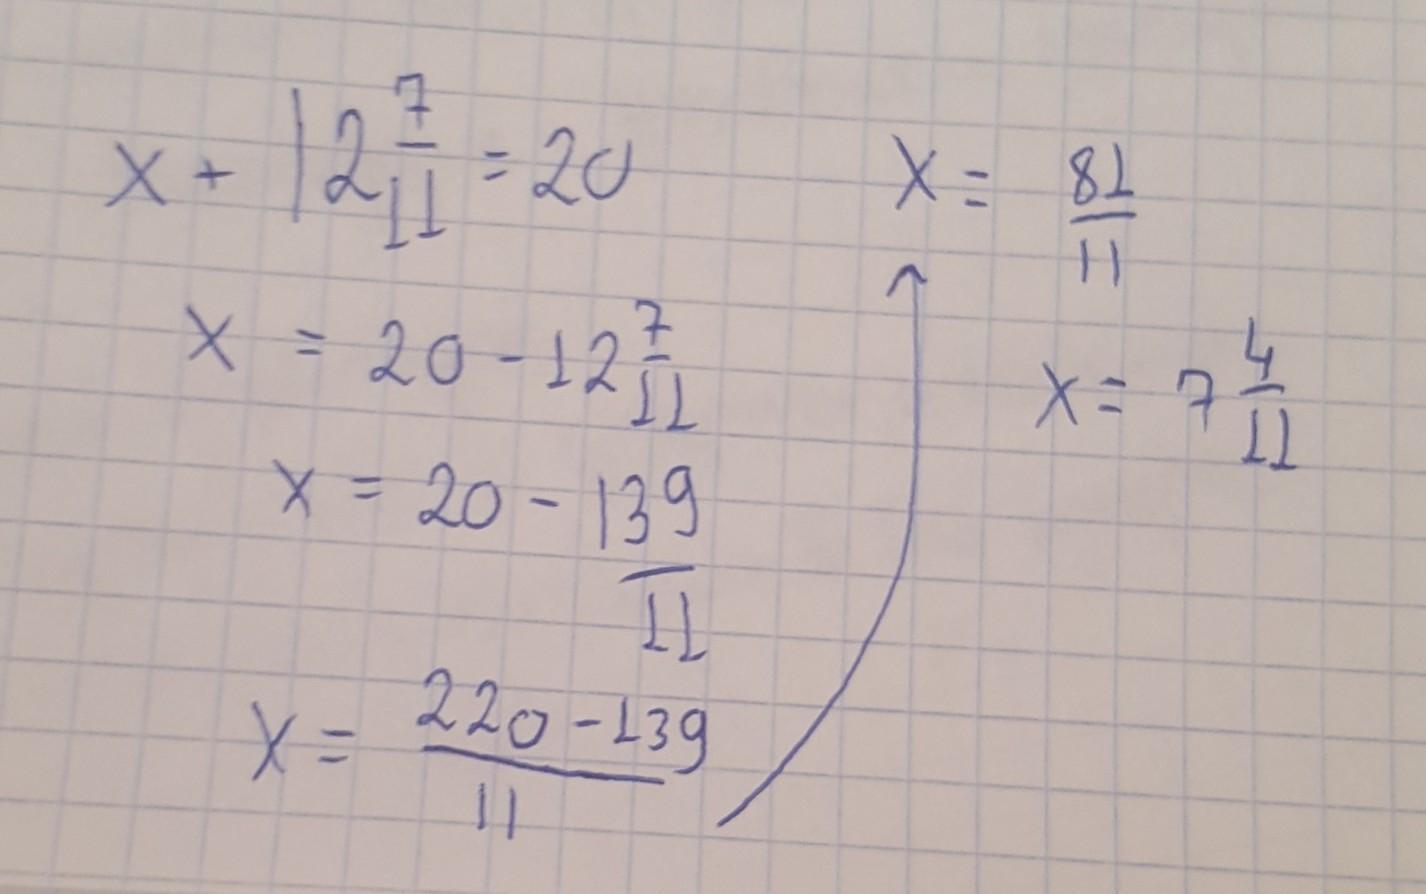 x + 12 7/11 = 20
x = 20 - 12 7/11
x = 20 - 139/11
x = (220 - 139)/11
x = 81/11
x = 7 4/11